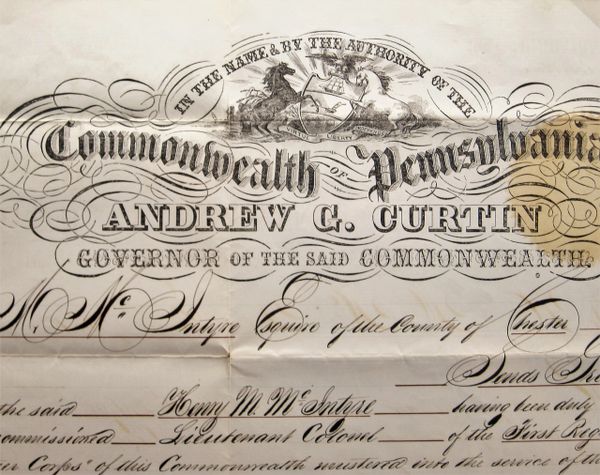 IN THE NAME & BY THE AUTHORITY OF THE
Commonwealth OF Pennsylvania
ANDREW G. CURTIN
GOVERNOR OF THE SAID COMMONWEALTH.
M. McIntyre Esquire of the County of Chester
Sends
the said Henry M. McIntyre having been duly
commissioned Lieutenant Colonel of the First Reg
Corps of this Commonwealth mustered into the service of th